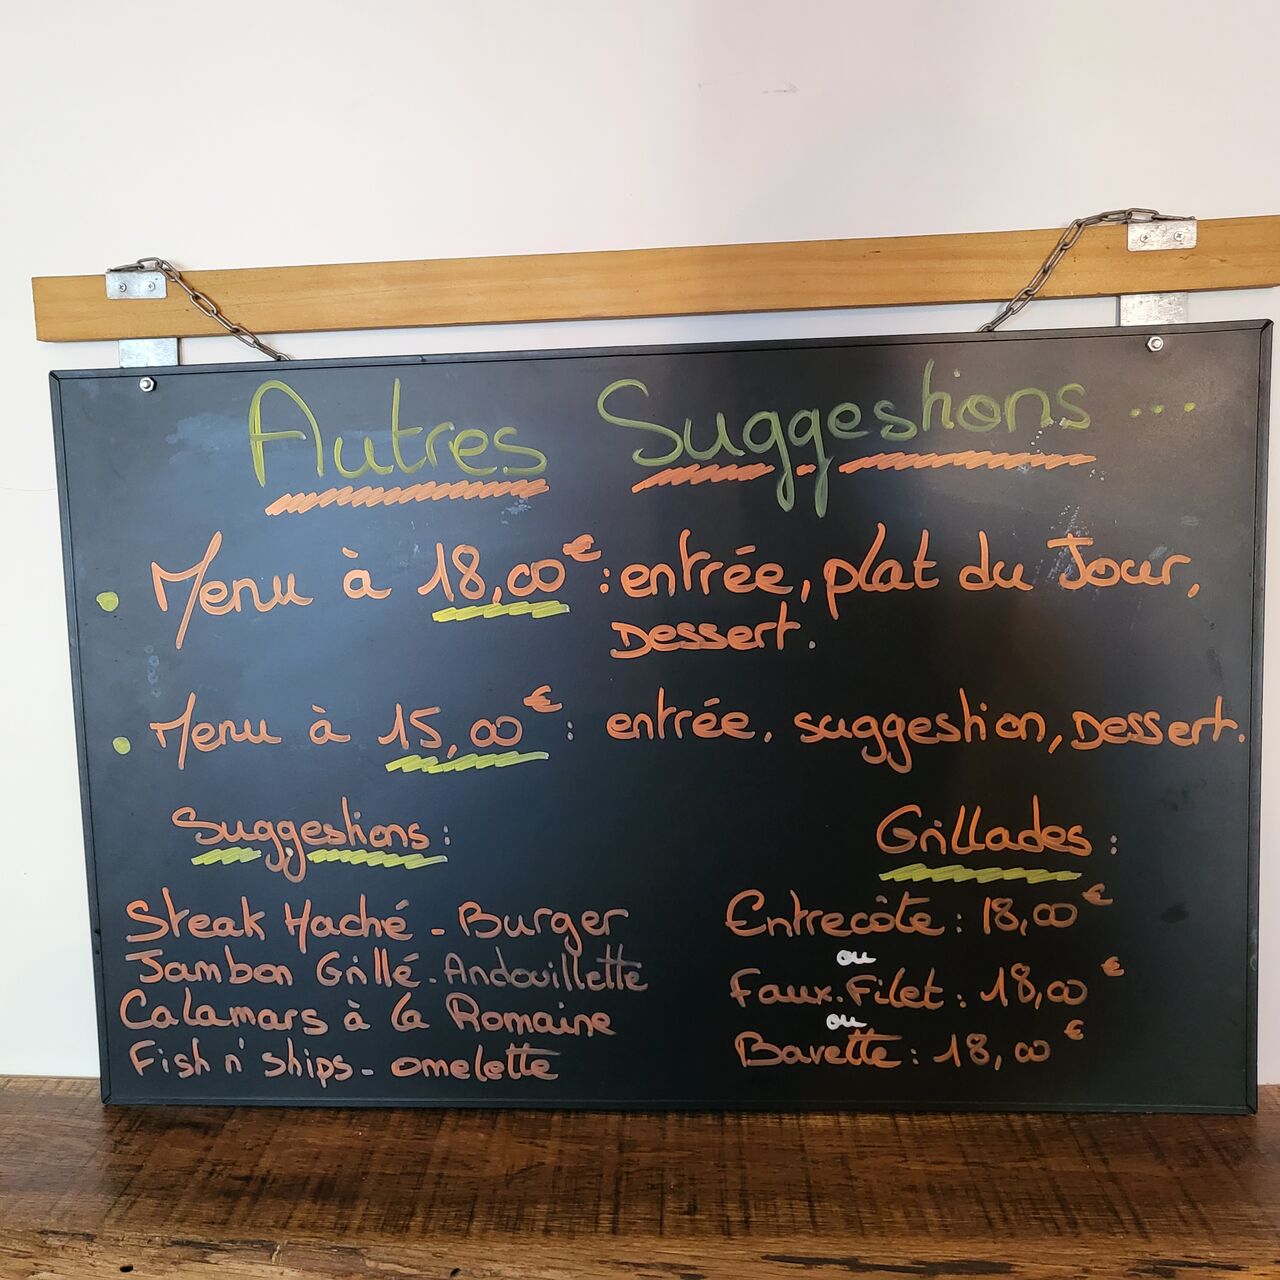 Autres Suggestions...
• Menu à 18,00€ : entrée, plat du Jour,
Dessert.
• Menu à 15,00€ : entrée, suggestion, Dessert.
Suggestions :
Steak Haché - Burger
Jambon Grillé - Andouillette
Calamars à la Romaine
Fish n' ships - omelette
Grillades :
Entrecôte : 18,00€
ou
Faux-Filet : 18,00€
ou
Bavette : 18,00€